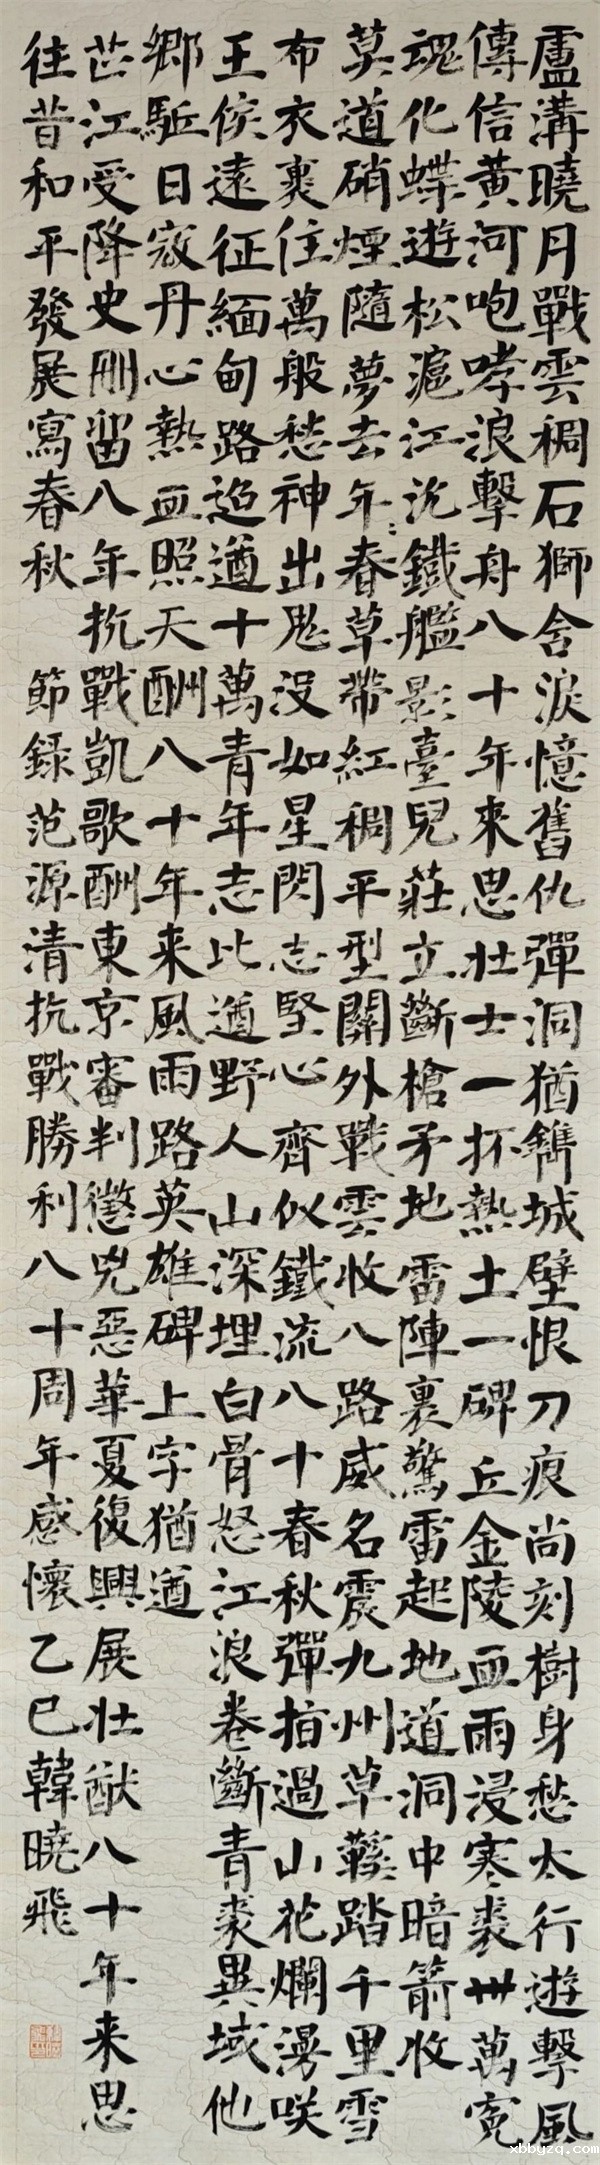 盧溝曉月戰雲稠石獅含淚憶舊仇彈洞猶鐫城壁恨刀痕尚刻樹身愁太行遊擊風
傳信黃河咆哮浪擊舟八十年來思壯士一抔熱土一碑丘金陵血雨浸寒裘卅萬冤
魂化蝶遊松滬江沈鐵艦影臺兒莊立斷槍矛地雷陣裏驚雷起地道洞中暗箭收
莫道硝煙隨夢去年々春草帶紅稠平型關外戰雲收八路威名震九州草鞋踏千里雪
布衣裹住萬般愁神出鬼沒如星閃志堅心齊似鐵流八十春秋彈指過山花爛漫咲
王侯遠征緬甸路迢遒十萬青年志比遒野人山深埋白骨怒江浪卷斷青裘異域他
鄉駈日寇丹心熱血照天酬八十年来風雨路英雄碑上字猶遒
芷江受降史冊留八年抗戰凱歌酬東京審判懲兇惡華夏復興展壯猷八十年来思
往昔和平發展寫春秋 節錄范源清抗戰勝利八十周年感懷乙巳韓曉飛
xbbyzq.com